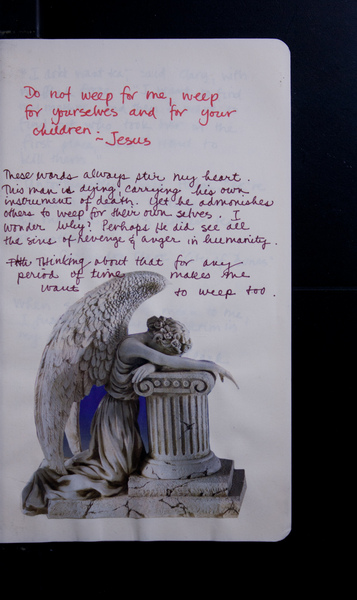 Do not weep for me, weep
for yourselves and for your
children.
~ Jesus
These words always stir my heart.
This man is dying, carrying his own
instrument of death. Yet he admonishes
others to weep for their own selves. I
wonder why? Perhaps He did see all
the sins of revenge & anger in humanity.
Thinking about that for any
period of time makes me
want to weep too.